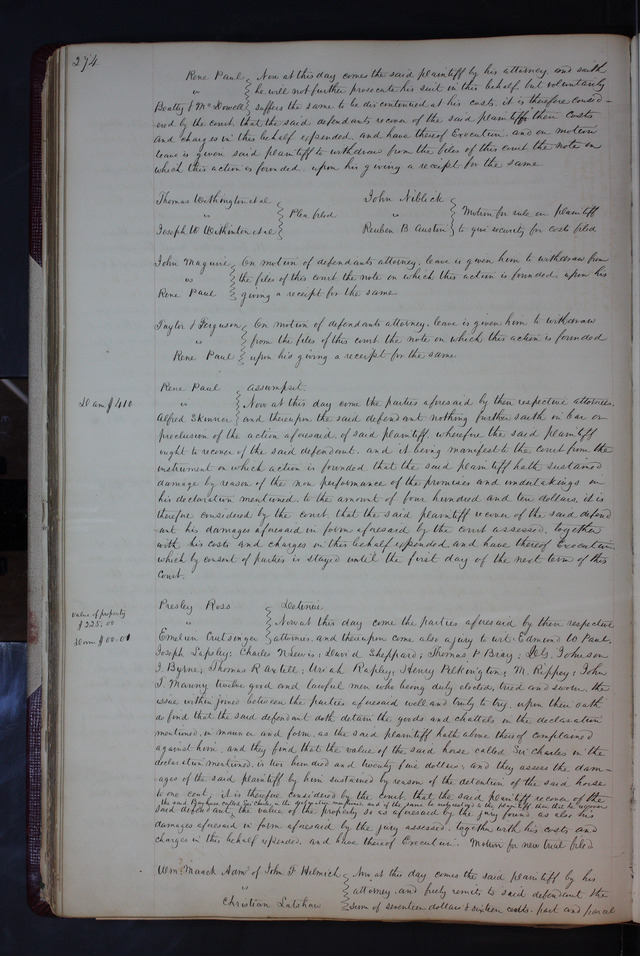 274
Rene Paul } Now at this day comes the said plaintiff by his attorney, and saith
vs } he will not further prosecute his suit in this behalf but voluntarily
Beatty & McDowell } suffers the same to be discontinued at his costs, it is therefore consid-
ered by the court that the said defendants recover of the said plaintiff their costs
and charges in this behalf expended and have thereof Execution, and on motion
leave is given said plaintiff to withdraw from the files of this court the note on
which this action is founded upon his giving a receipt for the same
Thomas Withington et al
" } Plea filed
Joseph W Withinton et al
John Niblick
" } Motion for rule on plaintiff
Reuben B Austin } to give security for costs filed
John Maguire } On motion of defendants attorney, leave is given him to withdraw from
vs } the files of this court the note on which this action is founded, upon his
Rene Paul } giving a receipt for the same
Taylor & Ferguson } On motion of defendants attorney, leave is given him to withdraw
" } from the files of this court the note on which this action is founded
Rene Paul } upon his giving a receipt for the same.
Rene Paul } assumpsit.
Dam $410
" } Now at this day come the parties aforesaid by their respective attornies,
Alfred Skinner } and thereupon the said defendant nothing further saith in bar or
preclusion of the action aforesaid, of said plaintiff, wherefore the said plaintiff
ought to recover of the said defendant, and it being manifest to the court from the
instrument on which action is founded that the said plaintiff hath sustained
damage by reason of the non performance of the promises and undertakings in
his declaration mentioned, to the amount of four hundred and ten dollars, it is
therefore considered by the court that the said plaintiff recover of the said defend
ant his damages aforesaid in form aforesaid by the court assessed, together
with his costs and charges in this behalf expended and have thereof Execution
which by consent of parties is stayed until the first day of the next term of this
Court.
Presley Ross } Detinue
value of property
$225.00
Dam $00.01
" } Now at this day come the parties aforesaid by their respective
Crutsinger } attornies, and thereupon come also a jury to wit: Edmond W Paul,
Joseph Lapsley; Charles N Lewis; David Sheppard; Thomas P Bray; Johnson
J. Byrne; Thomas R Axtell; Uriah Rapley; Henry Pilkington; M. Rippey; John
J Manny twelve good and lawful men who being duly elected, tried and sworn the
issue within joined between the parties aforesaid well and truly to try, upon their oath
do find that the said defendant doth detain the goods and chattels in the declaration
mentioned in manner and form, as the said plaintiff hath above thereof complained
against him, and they find that the value of the said horse called Sir Charles in the
declaration mentioned, is two hundred and twenty five dollars, and they assess the dam-
ages of the said plaintiff by him sustained by reason of the detention of the said horse
to one cent; it is therefore considered by the court, that the said plaintiff recover of the
said defendant the said Bay horse called Sir Charles in the declaration mentioned and if the same be not
the value of the property so as aforesaid by the jury found as also his
damages aforesaid in form aforesaid by the jury assessed, together with his costs and
charges in this behalf expended, and have thereof Execution. Motion for new trial filed
Wm Maack Admr of John F Helmich } Now at this day comes the said plaintiff by his
" } attorney and freely remits to said defendant the
Christian Latshaw } sum of seventeen dollars & sixteen cents, part and parcel